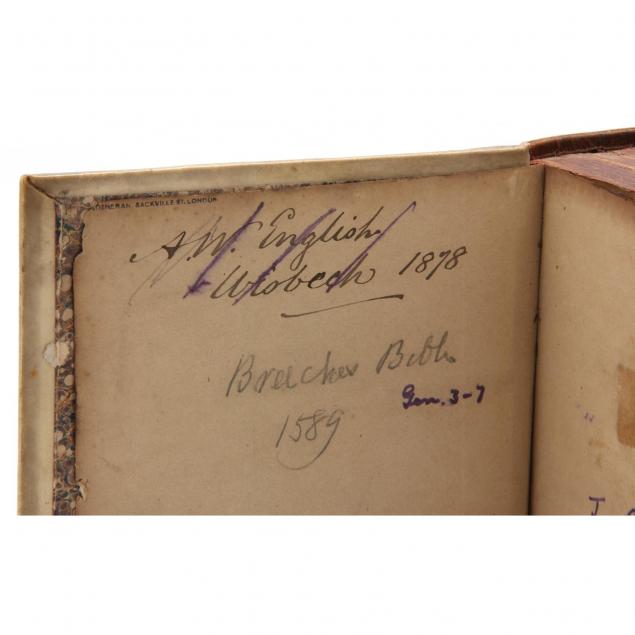 SOTHERAN, SACKVILLE ST. LONDON
A.W. English
Wisbech 1878
Breeches Bible
Gen. 3-7
1589